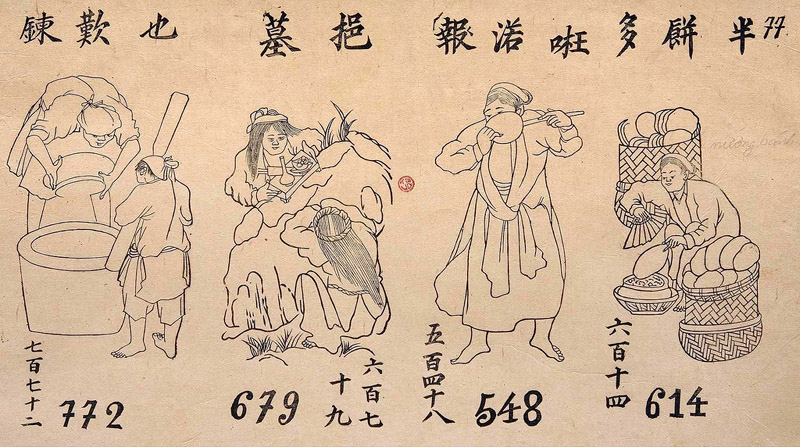 77
半餅多
渃報
挹墓
也歎鍊
nướng bánh
六百十四
614
五百四十八
548
六百七
十九
679
七百七十二
772